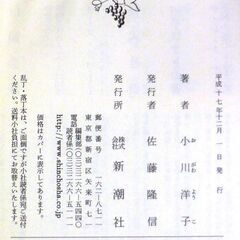 平成十七年十二月一日発行
著者 小川洋子
おがわようこ
発行者 佐藤隆信
発行所 株式会社 新潮社
郵便番号 一六二―八七一
東京都新宿区矢来町七一
電話 編集部〇三―三二六六―五四四〇
読者係〇三―三二六六―五一一一
http://www.shinchosha.co.jp
価格はカバーに表示してあります。
乱丁・落丁本は、ご面倒ですが小社読者係宛ご送付
ください。送料小社負担にてお取替えいたします。